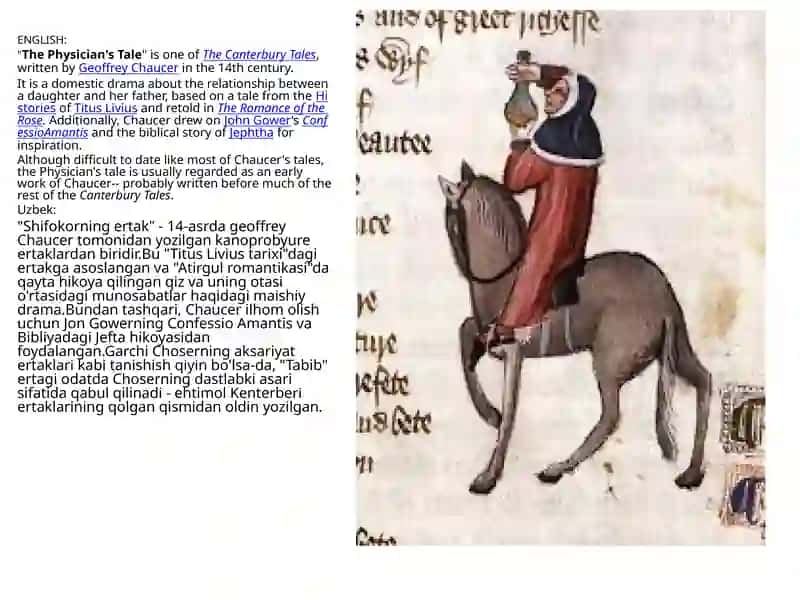 ENGLISH:
"The Physician's Tale" is one of The Canterbury Tales,
written by Geoffrey Chaucer in the 14th century.
It is a domestic drama about the relationship between
a daughter and her father, based on a tale from the Hi
stories of Titus Livius and retold in The Romance of the
Rose. Additionally, Chaucer drew on John Gower's Conf
essioAmantis and the biblical story of Jephtha for
inspiration.
Although difficult to date like most of Chaucer's tales,
the Physician's tale is usually regarded as an early
work of Chaucer-- probably written before much of the
rest of the Canterbury Tales.
Uzbek:
"Shifokorning ertak" - 14-asrda geoffrey
Chaucer tomonidan yozilgan kanoprobyure
ertaklardan biridir.Bu "Titus Livius tarixi"dagi
ertakga asoslangan va "Atirgul romantikasi"da
qayta hikoya qilingan qiz va uning otasi
o'rtasidagi munosabatlar haqidagi maishiy
drama.Bundan tashqari, Chaucer ilhom olish
uchun Jon Gowerning Confessio Amantis va
Bibliyadagi Jefta hikoyasidan
foydalangan.Garchi Choserning aksariyat
ertaklari kabi tanishish qiyin bo'lsa-da, "Tabib"
ertagi odatda Choserning dastlabki asari
sifatida qabul qilinadi - ehtimol Kenterberi
ertaklarining qolgan qismidan oldin yozilgan.
s and of greet richesse
s wyf
eautee